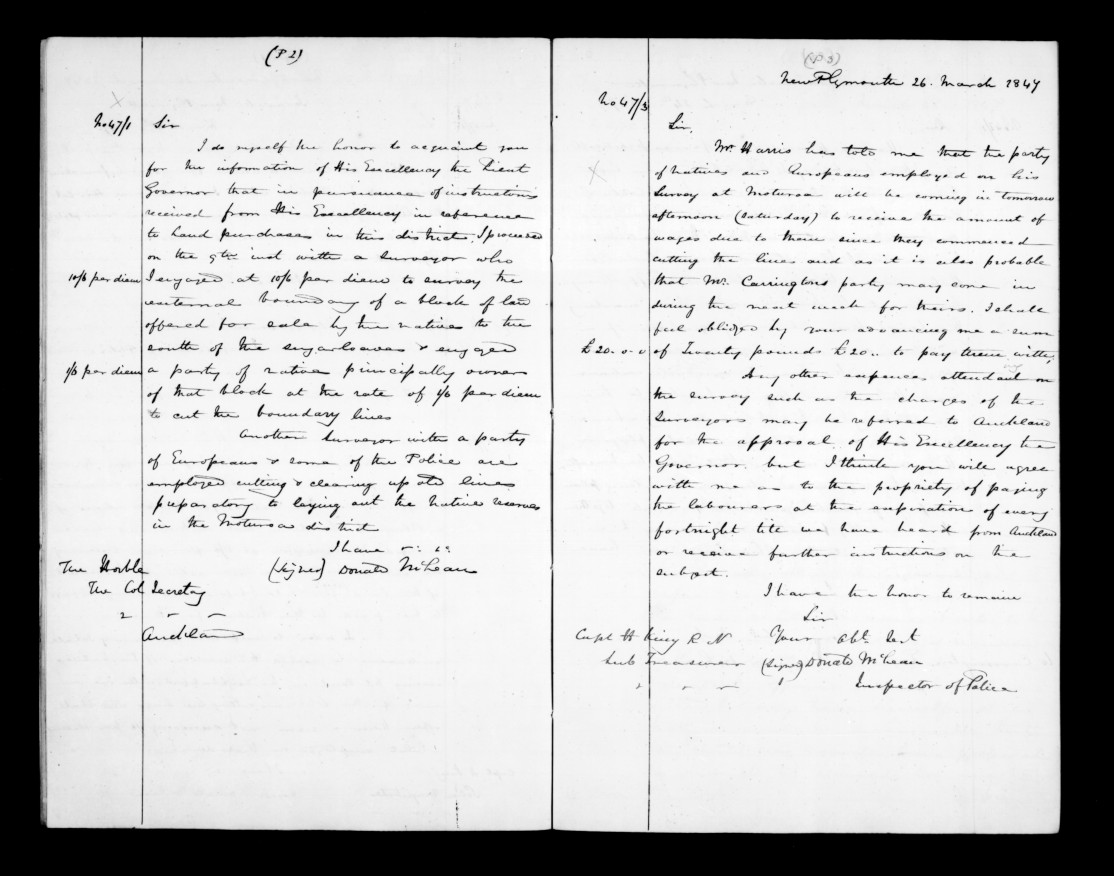 (P 2)
No 47/1 Sir
I do myself the honor to acquaint you
for the information of His Excellency the Lieut
Governor that in pursuance of instructions
received from His Excellency in reference
to Land purchases in this district, I proceeded
on the 9th inst with a surveyor who
10/6 per diem I engaged at 10/6 per diem to survey the
external boundary of a block of land
offered for sale by the natives to the
south of the sugarloaves & engaged
1/6 per diem a party of natives principally owners
of that block at the rate of 1/6 per diem
to cut the boundary lines
Another Surveyor with a party
of Europeans & some of the Police are
employed cutting & clearing up old lines
preparatory to laying out the Native reserves
in the Moturoa district
I have
(signed) Donald McLean
The Honble
The Col Secretary
Auckland
(P 3)
New Plymouth 26. March 1847
No 47/3
Sir,
Mr. Harris has told me that the party
of Natives and Europeans employed on his
Survey at Moturoa will be coming in tomorrow
afternoon (Saturday) to receive the amount of
wages due to them since they commenced
cutting the lines and as it is also probable
that Mr. Carringtons party may come in
during the next week for theirs. I shall
feel obliged by your advancing me a sum
£20.0.0 of Twenty pounds £20.. to pay them with
Any other expences attendant on
the survey such as the charges of the
Surveyors may be referred to Auckland
for the approval of His Excellency the
Governor, but I think you will agree
with me as to the propriety of paying
the labourers at the expiration of every
fortnight till we have heard from Auckland
or receive further instructions on the
subject.
I have the honor to remain
Sir
Capt H King R N Your Obt
Sub Treasurer (signed) Donald McLean
Inspector of Police